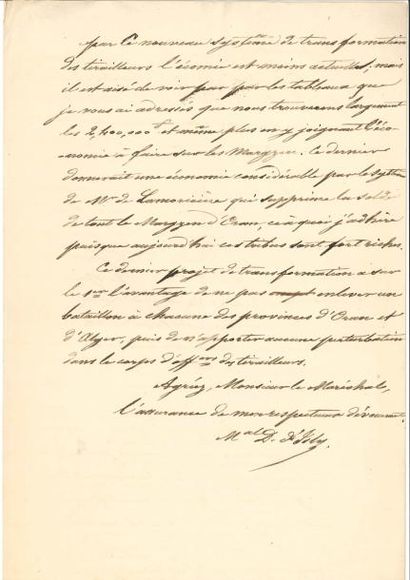 par ce nouveau système de transformation
des tirailleurs l'écomie est moins actuelle; mais
il est aisé de voir par par les tableaux que
je vous ai adressés que nous trouverons largement
les 2,400,000f et même plus en y joignant l'éco-
nomie à faire sur les Margzen. Ce dernier
donnerait une économie considérable par le système
de Mr de Lamoricière qui supprime la solde
de tout le Margzen d'Oran, ce à quoi j'adhère
puisque aujourd'hui ces tribus sont fort riches.
Ce dernier projet de transformation a sur
le 1er l'avantage de ne pas enlever un
bataillon à chacune des provinces d'Oran et
d'Alger, puis de n'apporter aucune perturbation
dans le corps d'offers des tirailleurs.
Agréez, Monsieur le Maréchal,
l'assurance de mon respectueux dévouement.
Mal D. d'Isly